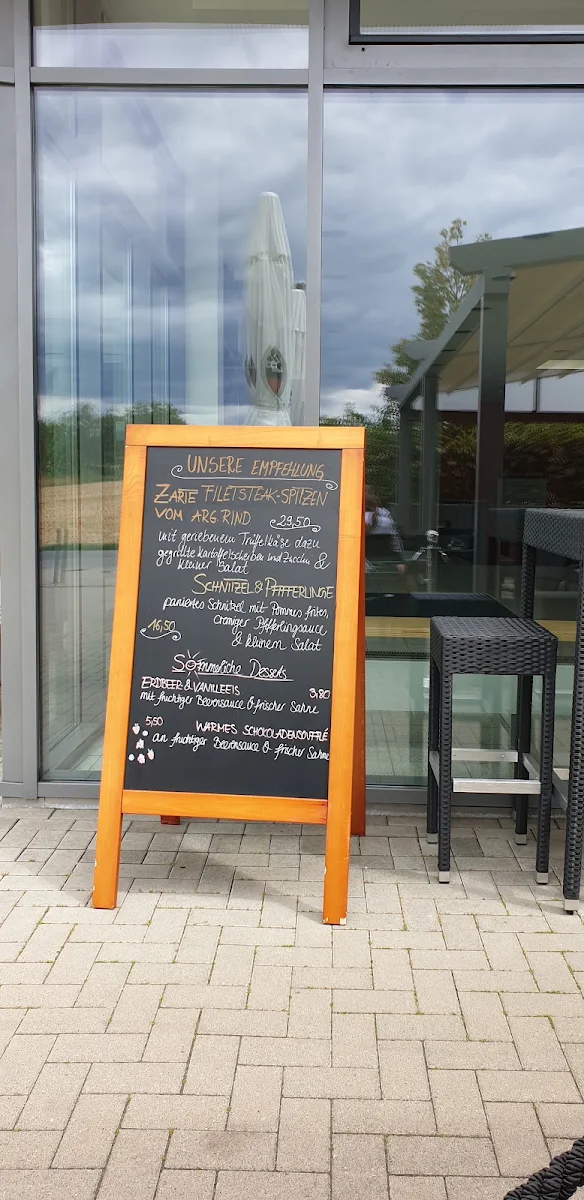 UNSERE EMPFEHLUNG
ZARTE FILETSTEAK-SPITZEN
VOM ARG. RIND 29,50
mit geriebenem Trüffelkäse dazu
gegrillte Kartoffelscheiben und Zucchini &
kleiner Salat
SCHNITZEL & PFIFFERLINGE
paniertes Schnitzel mit Pommes frites,
cremiger Pfifferlingsauce
16,50
& kleinen Salat
Sommerliche Desserts
ERDBEER & VANILLEEIS 3,80
mit fruchtiger Beerensauce & frischer Sahne
5,50 WARMES SCHOKOLADENSOUFFLÉ
an fruchtiger Beerensauce & frischer Sahne